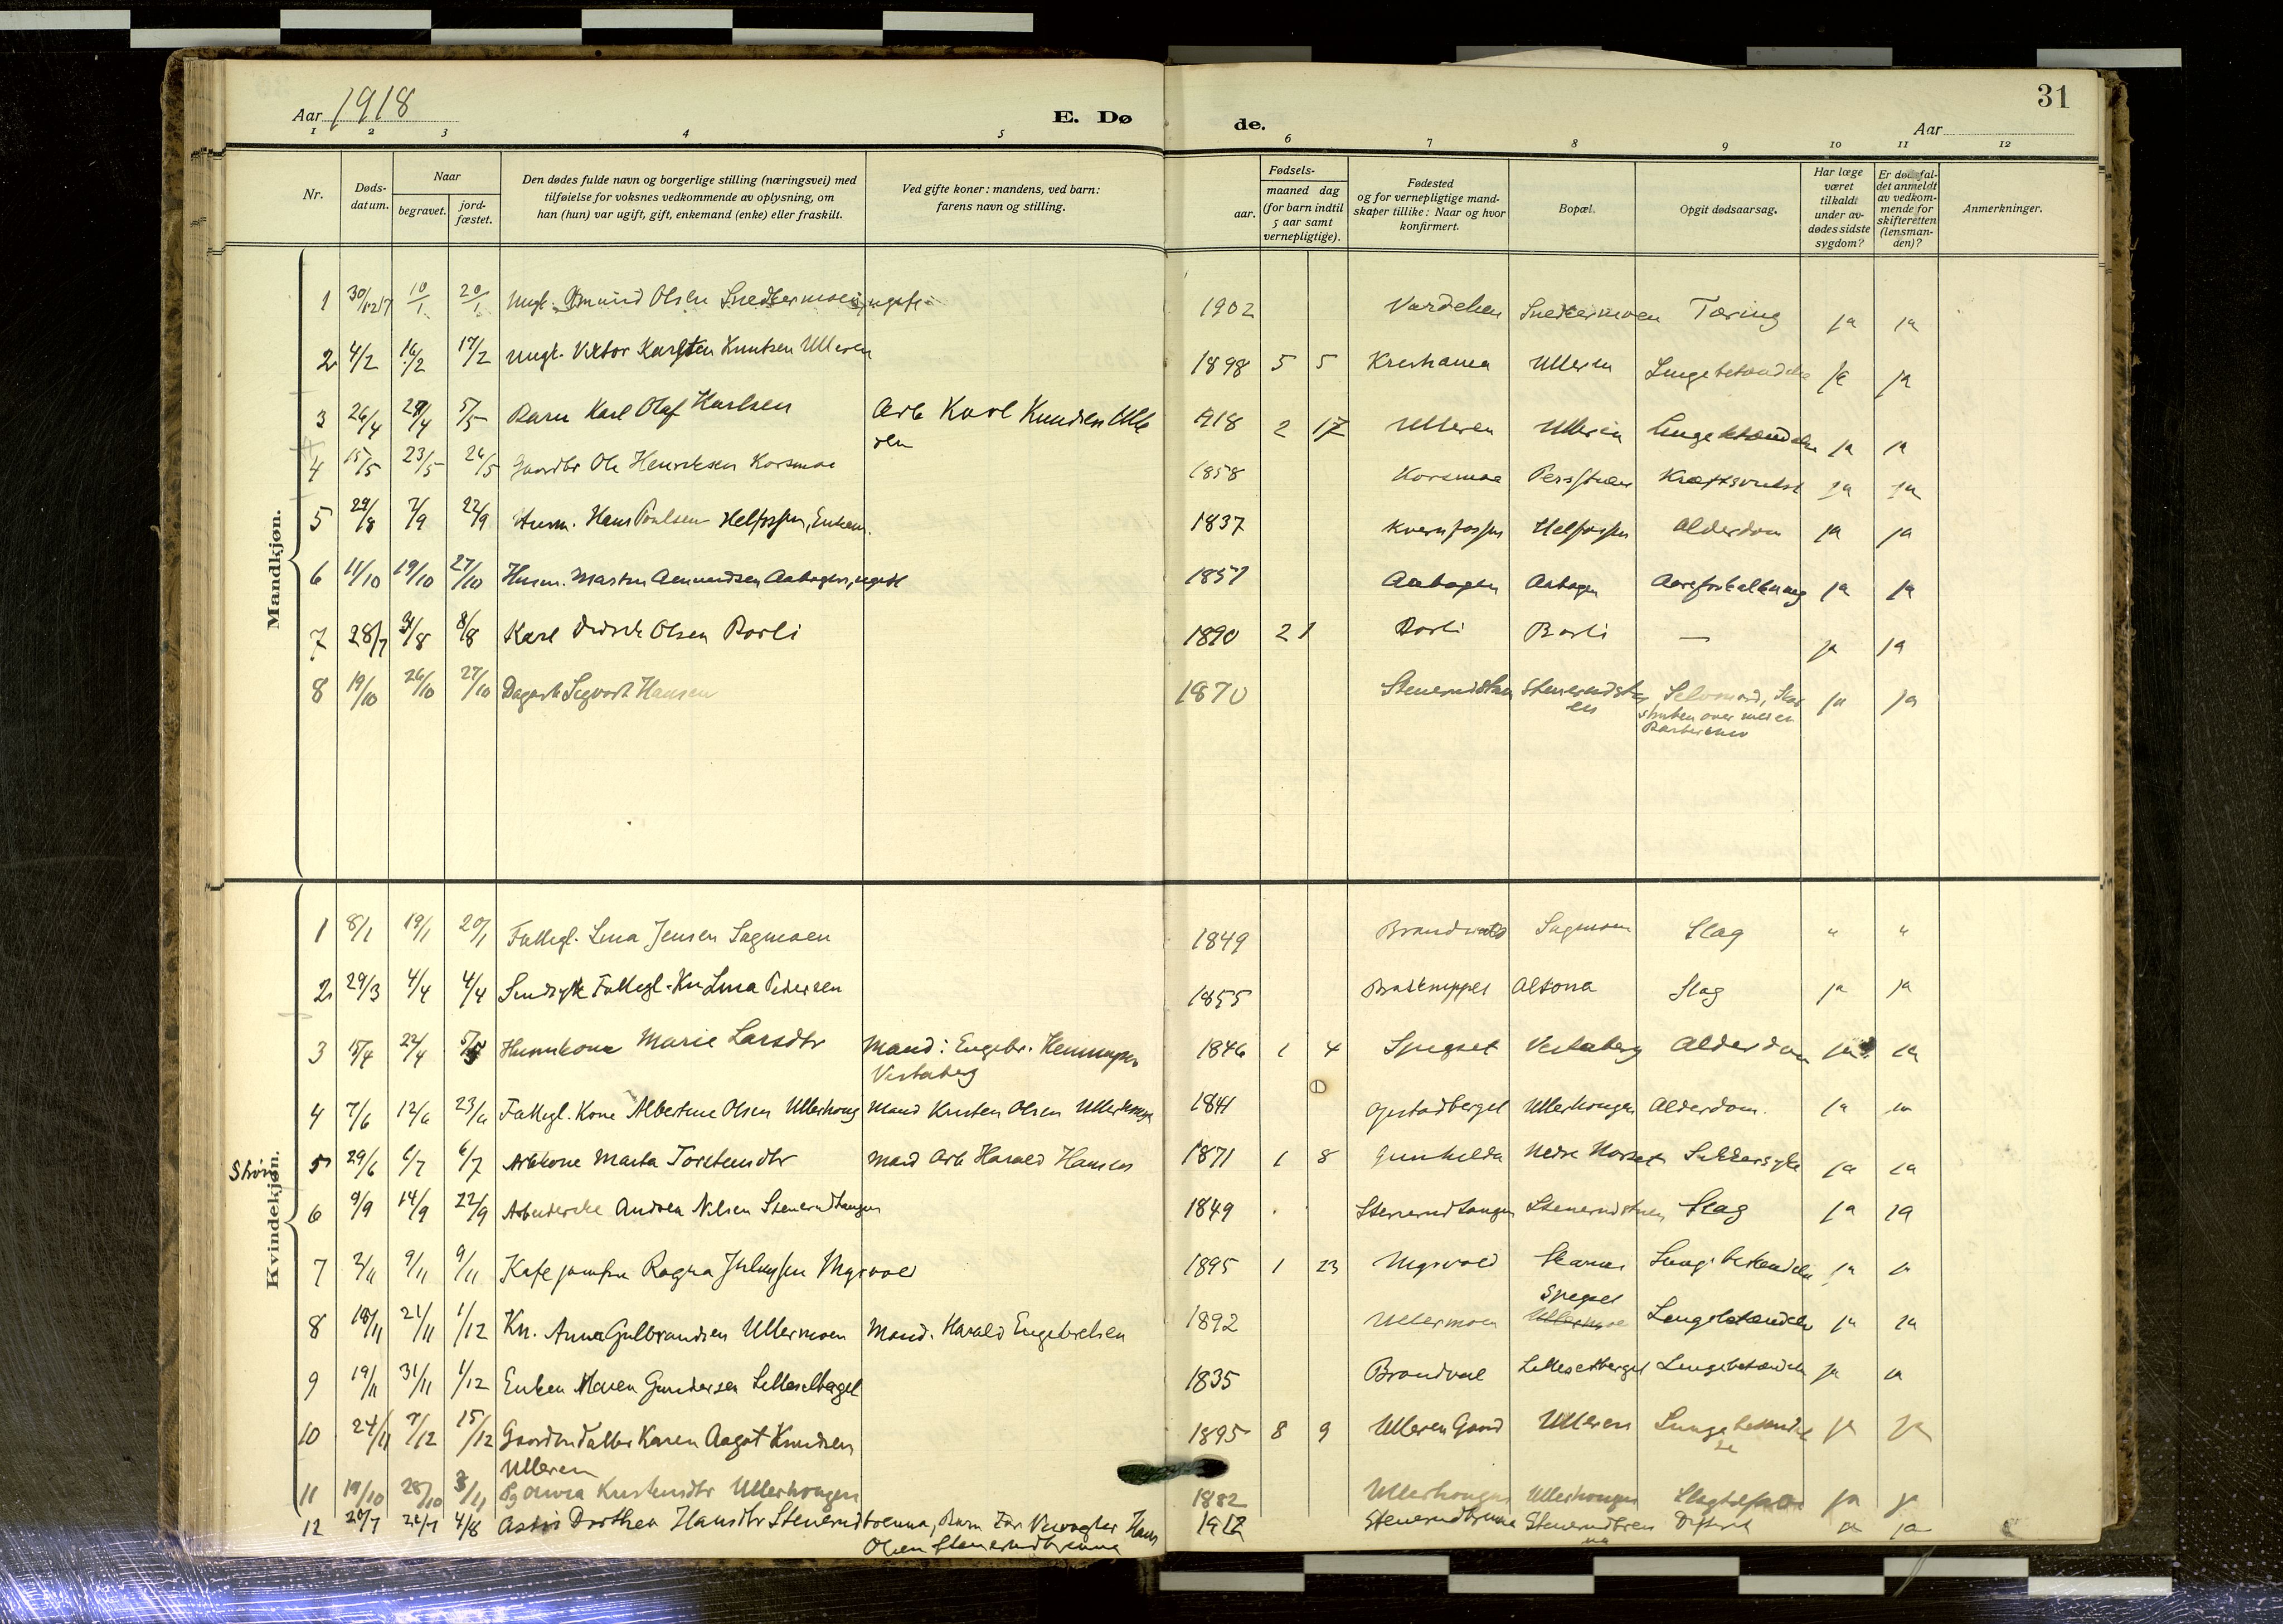 31
Aar 1918
E. Døde.
Aar
1 2 3 4 5 6 7 8 9 10 11 12
Nr.
Døds-datum.
Naar
begravet.
jord-fæstet.
Den dødes fulde navn og borgerlige stilling (næringsvei) med
tilføielse for voksnes vedkommende av oplysning, om
han (hun) var ugift, gift, enkemand (enke) eller fraskilt.
Ved gifte koner: mandens, ved barn:
farens navn og stilling.
Fødsels-
aar.
maaned dag
(for barn indtil
5 aar samt
vernepligtige).
Fødested
og for vernepligtige mand-
skaper tillike: Naar og hvor
konfirmert.
Bopæl.
Opgit dødsaarsag.
Har læge
været
tilkaldt
under av-
dødes sidste
sygdom?
Er dødsfal-
det anmeldt
av vedkom-
mende for
skifteretten
(lensman-
den)?
Anmerkninger.
Mandkjøn.
1 30/12 17 10/1 20/1 Ungk. Olsen Snekkermoen, ugift 1902 Vardehen Snekkermoen Tæring ja ja
2 4/2 16/2 17/2 Ungk. Viktor Karsten Knutsen Ulleren 1898 5 5 Kristiania Ulleren Lungebetændelse ja ja
3 26/4 28/4 5/5 Barn Karl Olaf Karlsen Arb Karl Knudsen Ulleren 918 2 17 Ulleren Ulleren Lungebetændelse ja ja
4 15/5 23/5 26/5 Gaardbr Ole Henriksen Korsmoe 1858 Korsmoe Persstuen Kræftsvulst ja ja
5 29/8 7/9 22/9 Husm. Hans Poulsen Helfossen, Enkem. 1837 Kvernfossen Helfossen Alderdom ja ja
6 11/10 19/10 27/10 Husm. Martin Aamundsen Aabogen, ugift 1857 Aabogen Aabogen Aareforkalkning ja ja
7 28/7 3/8 8/8 Karl Olsen Borli 1890 21 Borli Borli — ja ja
8 19/10 26/10 27/10 Dagarb Sigvart Hansen 1870 Stenerudstuen Stenerudstuen Selvmord, over med en Barberkniv ja ja
Kvindekjøn.
1 8/1 19/1 20/1 Fattigl. Lina Jensen Sagmoen 1849 Brandvold Sagmoen Slag " "
2 29/3 4/4 4/4 Sindsyk Fattigl. Kn Lina Pedersen 1855 Altona Slag ja ja
3 15/4 22/4 5/5 Husmkone Marie Larsdtr Mand: Engebr. Henningsen Vestaberg 1846 1 4 Spigset Vestaberg Alderdom ja ja
4 7/6 12/6 23/6 Fattigl. Kone Albertine Olsen Ullerhoug Mand Kristen Olsen 1841 Opstadberget Ullerhougen Alderdom. ja ja
Strøm 5 29/6 6/7 6/7 Arbkone Marta Torstensdtr Mand Arb Harald Hansen 1871 1 8 Gunhilda Nedre Norset Sukkersyke ja ja
6 9/9 14/9 22/9 Arbeiderske Andrea Nilsen Stenerudtangen 1849 Stenerudtangen Stenerudstuen Slag ja ja
7 2/11 9/11 9/11 Kafejomfru Ragna Julussen Mysvold 1895 1 23 Mysvold Skarnes Lungebetændelse ja ja
8 18/11 21/11 1/12 Kn. Anna Gulbrandsen Ullermoen Mand. Harald Engebretsen 1892 Ullermoen Spigset Ullermoe Lungebetændelse ja ja
9 19/11 31/11 1/12 Enken Maren Gundersen Lillesetberget 1835 Brandval Lillesetberget Lungebetændelse ja ja
10 24/11 7/12 15/12 Gaardmdatter Karen Aagot Knudsen Ulleren 1895 8 9 Ulleren Gaard Ulleren Lungebetændelse ja ja
11 19/10 28/10 3/11 Pg Kristensdtr Ullerhougen 1882 Ullerhougen Ullerhougen Slagtilfælde ja ja
12 20/7 26/7 4/8 Astri Dorthea Hansdtr Stenerudbrenna, Barn Far: Hans Olsen Stenerudbrenna 1912 Stenerudbrenna Stenerudbrenna Difterit ja ja